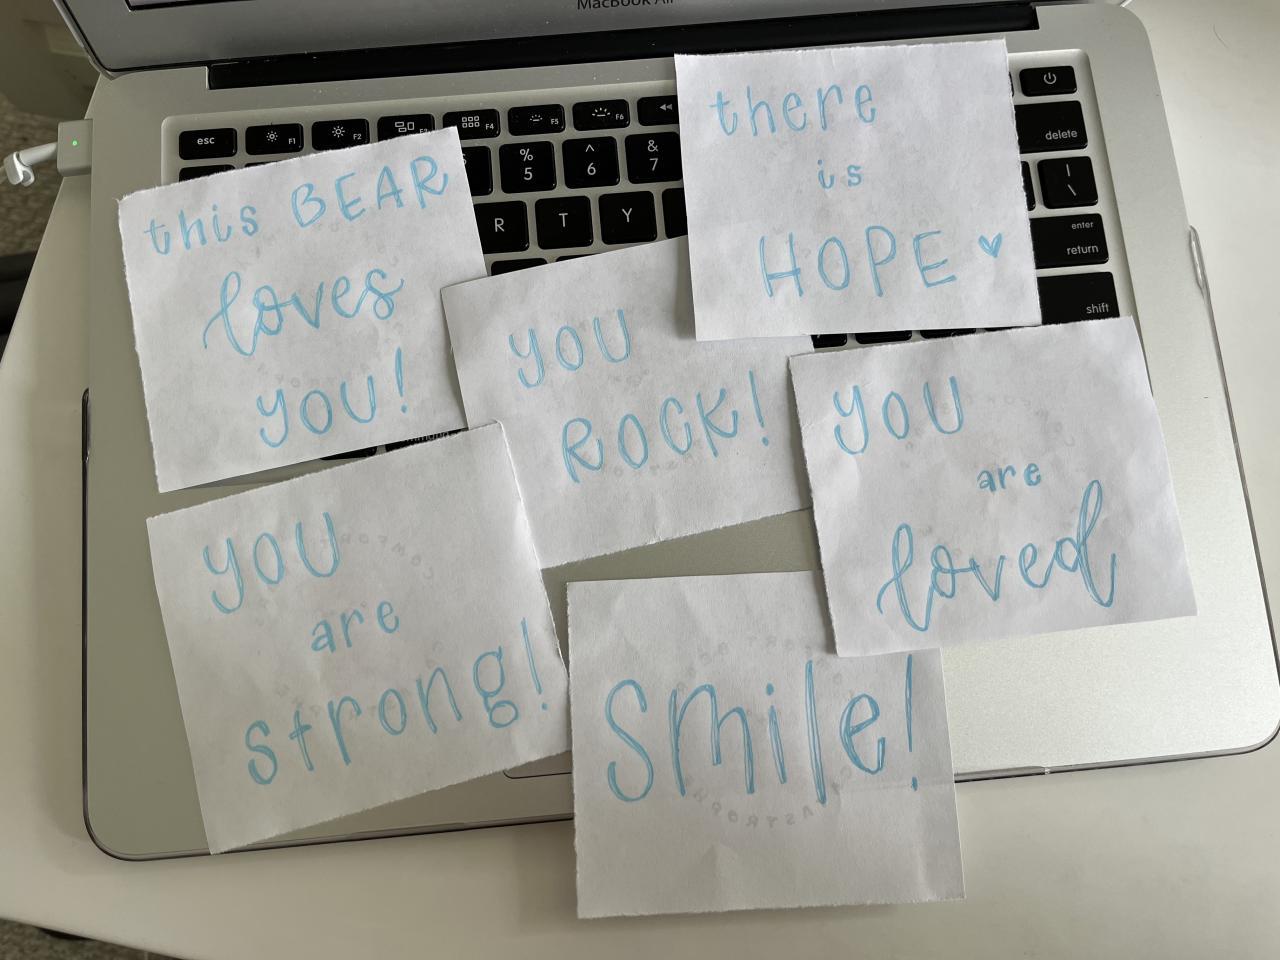 MacBook Air
esc
F1
F2
F3
F4
F5
F6
%
5
^
6
&
7
R
T
Y
delete
|
\
enter
return
shift
this BEAR
loves
you!
there
is
HOPE ♥
you
ROCK!
you
are
loved
you
are
strong!
Smile!